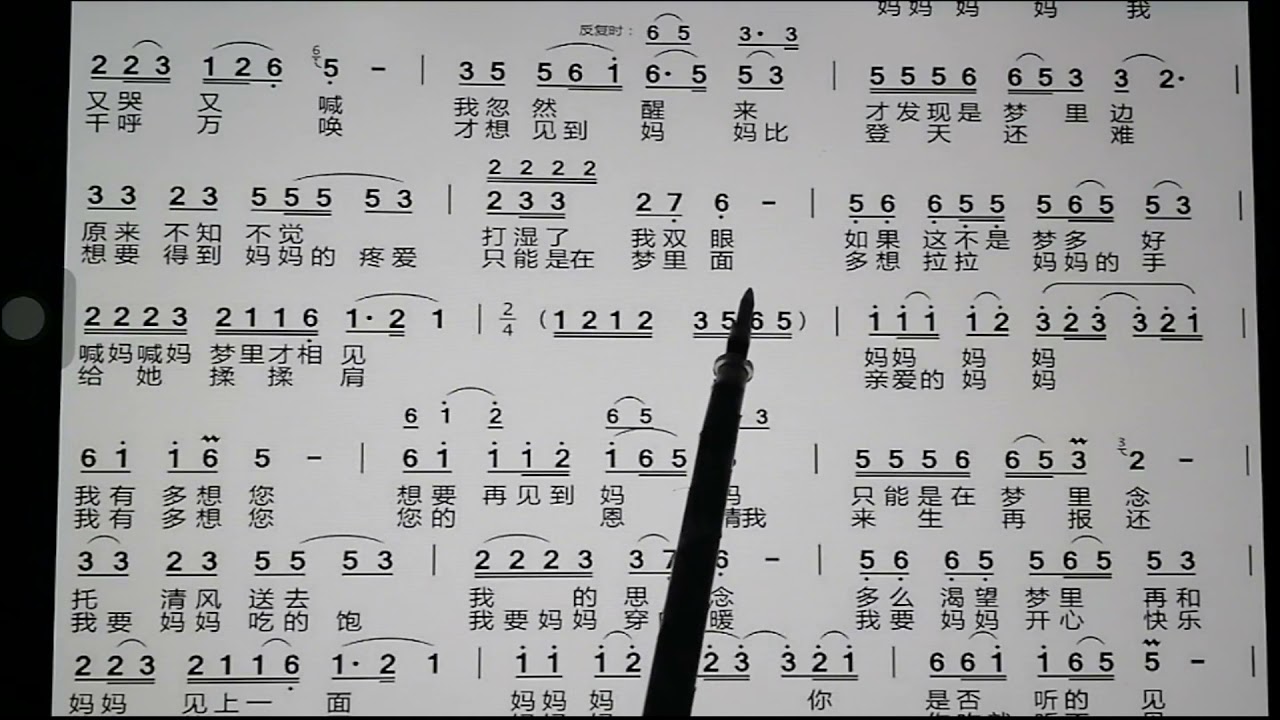 妈妈 妈 妈 我
反复时： 6 5 3· 3
2 2 3 1 2 6 5 – | 3 5 5 6 1 6· 5 5 3 | 5 5 5 6 6 5 3 3 2· |
又哭 又 喊 我忽然 醒 来 才发现是 梦 里 边
千呼 万 唤 才想见到 妈 妈比 登 天 还 难
2 2 2 2
3 3 2 3 5 5 5 5 3 | 2 3 3 2 7 6 – | 5 6 6 5 5 5 6 5 5 3 |
原来 不知 不觉 打湿了 我双 眼 如果 这不是 梦多 好
想要 得到 妈妈的 疼爱 只能是在 梦里 面 多想 拉拉 妈妈的 手
2 2 2 3 2 1 1 6 1· 2 1 | 2/4 （1 2 1 2 3 5 6 5） | 1 1 1 1 2 3 2 3 3 2 1 |
喊妈喊妈 梦里才相 见 妈妈 妈 妈
给 她 揉 揉 肩 亲爱的 妈 妈
6 1 2 6 5 3
6 1 1 6 5 – | 6 1 1 1 2 1 6 5 | 5 5 5 6 6 5 3 3 2 – |
我有 多想 您 想要 再见到 妈 只能是在 梦 里 念
我有 多想 您 您的 恩 情我 来 生 再 报 还
3 3 2 3 5 5 5 3 | 2 2 2 3 3 7 6 – | 5 6 6 5 5 6 5 5 3 |
托 清风 送去 我 的 思 念 多么 渴望 梦里 再和
我要 妈妈 吃的 饱 我要妈妈 穿 暖 我要 妈妈 开心 快乐
2 2 3 2 1 1 6 1· 2 1 | 1 1 1 2 2 3 3 2 1 | 6 6 1 1 6 5 5 – |
妈妈 见上一 面 妈妈 妈 你 是否 听的 见